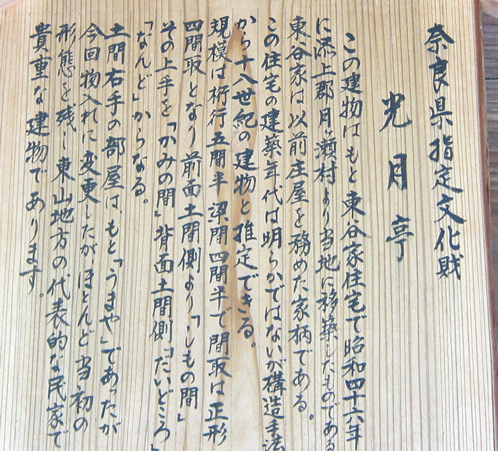 奈良県指定文化財
光月亭
この建物はもと東谷家住宅で昭和四十六年
に添上郡月ヶ瀬村より当地に移築したものである
東谷家は以前庄屋を務めた家柄である。
この住宅の建築年代は明らかではないが構造手法
から十八世紀の建物と推定できる。
規模は桁行五間半梁間四間半で間取は正形
四間取となり前面土間側より「しもの間」
その上手を「かみの間」背面土間側「だいどころ」
「なんど」からなる。
土間右手の部屋は、もと「うまや」であったが
今回物入れに変更したがほとんど当初の
形態を残し東山地方の代表的な民家で
貴重な建物であります。